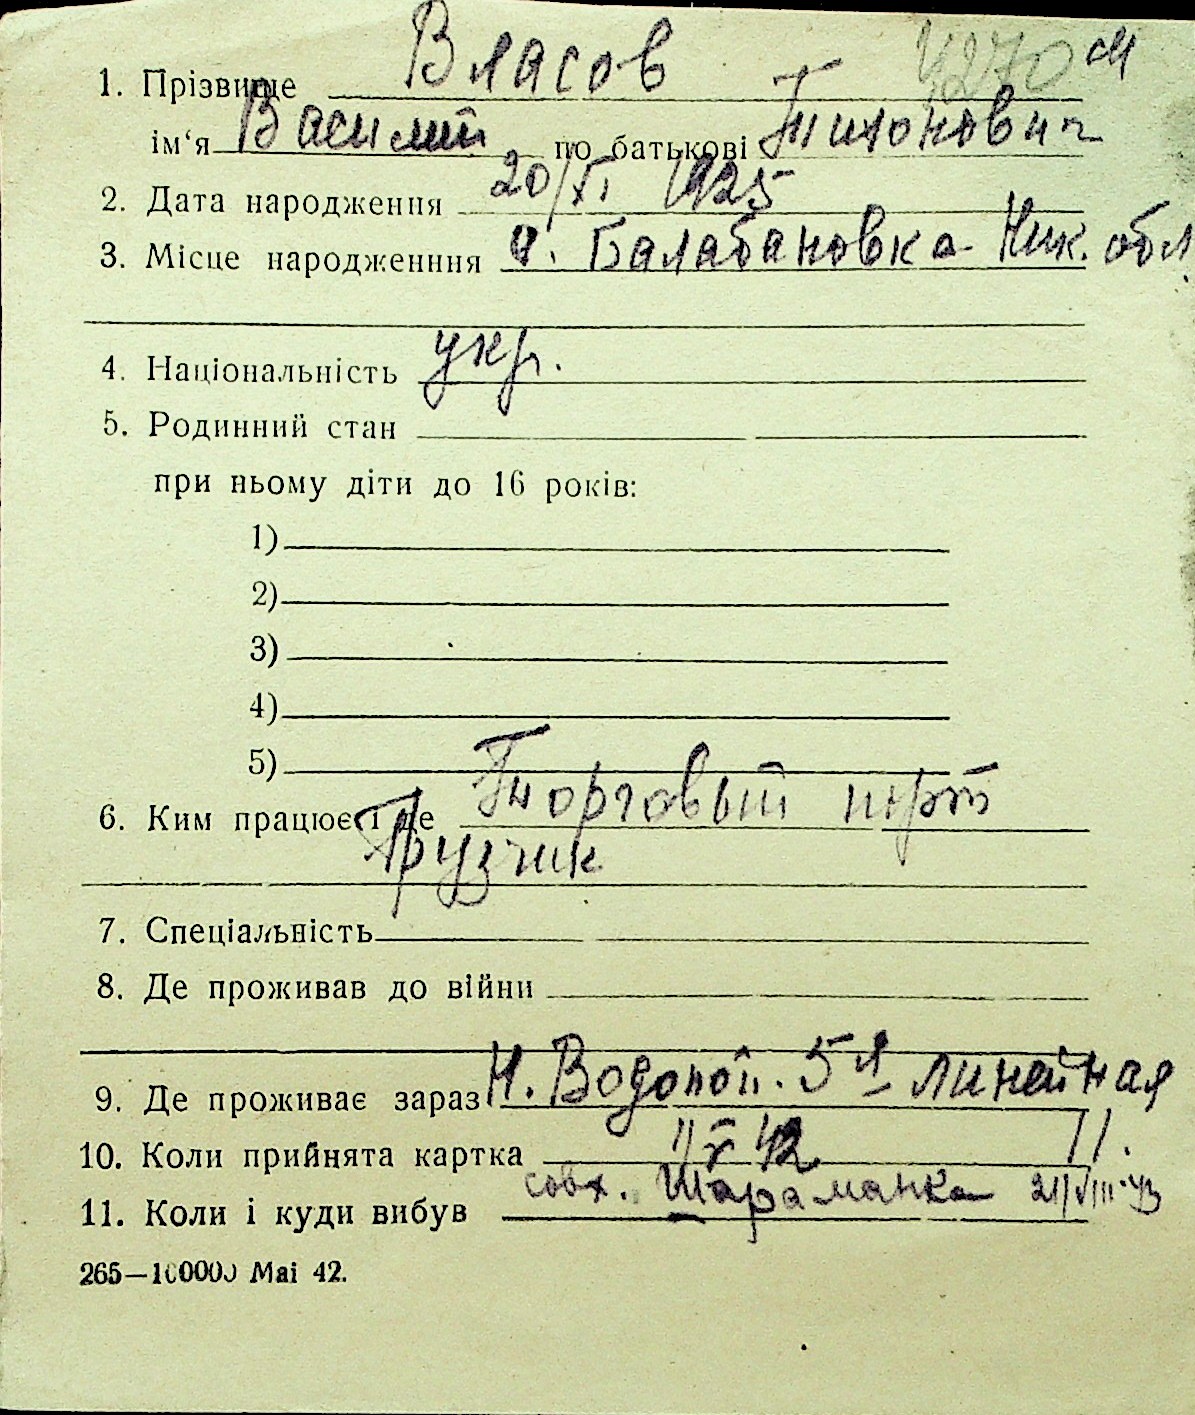 1. Прізвище Власов 4270 м
ім‘я Василий по батькові Тихонович
2. Дата народження 20/XI 1925
3. Місце народженння с. Балабановка Ник. обл
4. Національність укр.
5. Родинний стан
при ньому діти до 16 років:
1)
2)
3)
4)
5)
6. Ким працює і де Торговый порт
Грузчик
7. Спеціальність
8. Де проживав до війни
9. Де проживає зараз Н. Водопой. 5я линейная
10. Коли прийнята картка X 42 11.
11. Коли і куди вибув совх. Шараманка 21/VIII-43
265—100000 Mai 42.